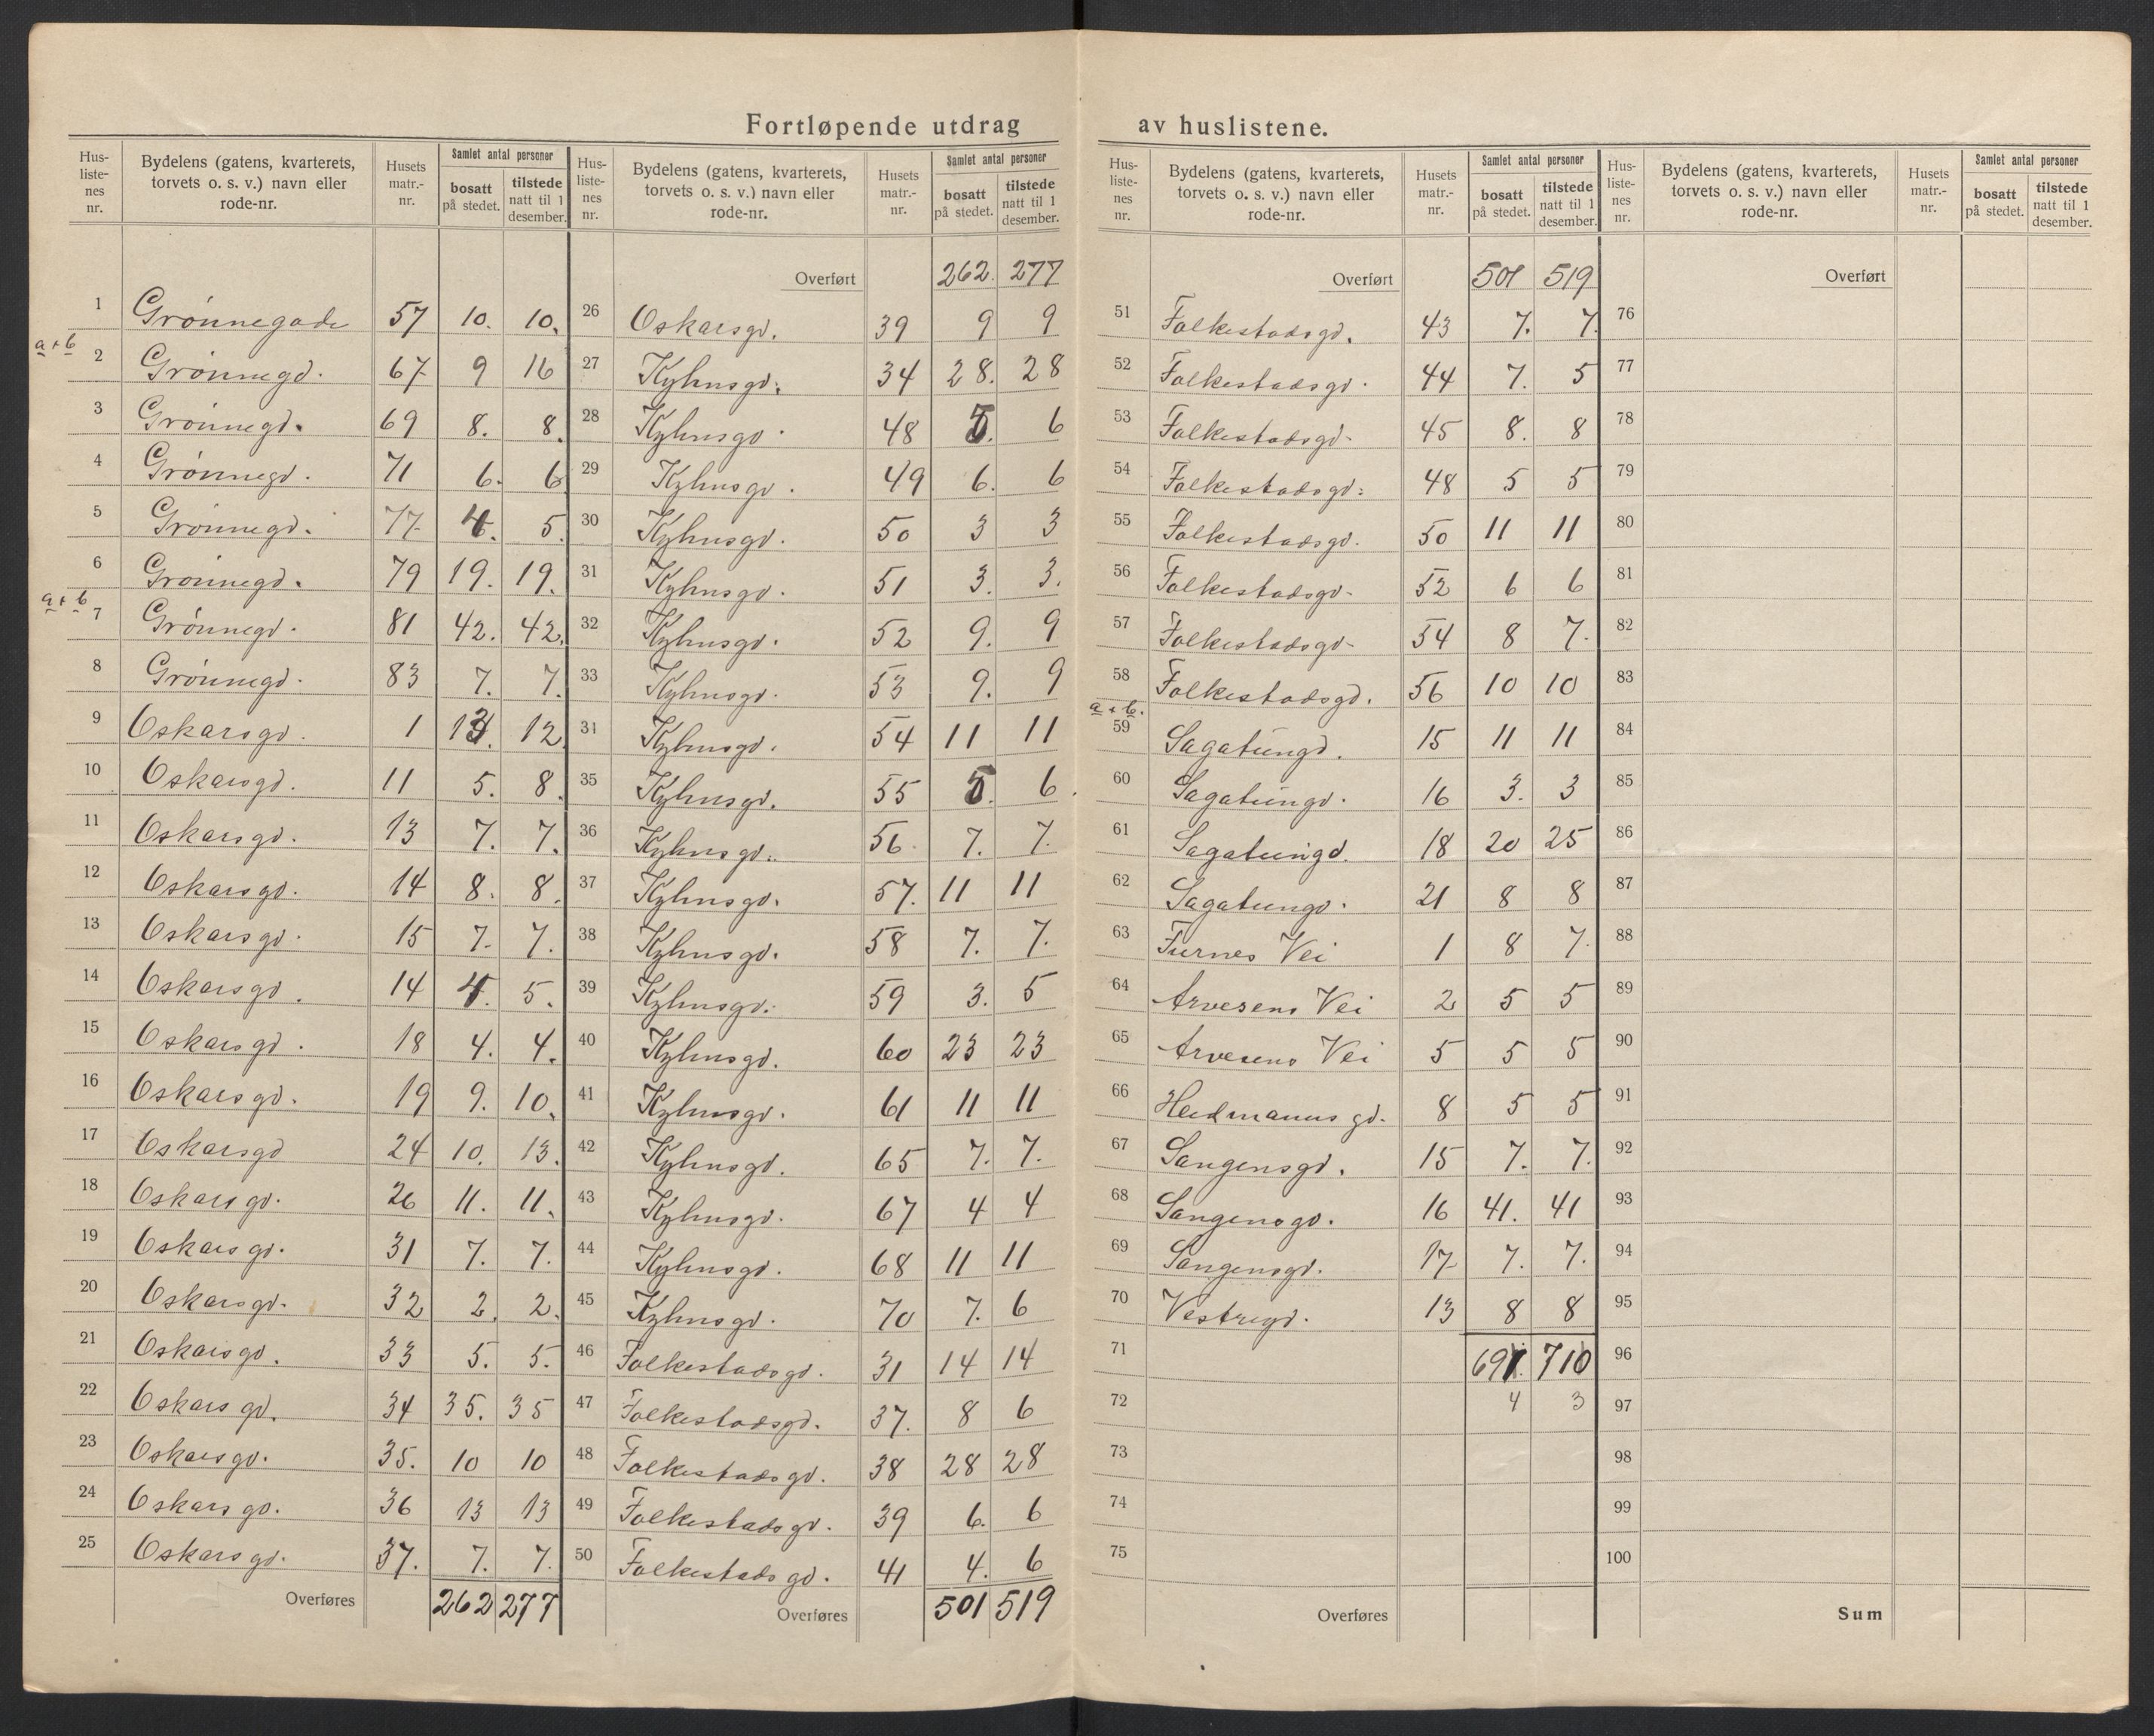 Fortløpende utdrag av huslistene.
Hus-listenes nr. | Bydelens (gatens, kvarterets, torvets o. s. v.) navn eller rode-nr. | Husets matr.-nr. | Samlet antal personer | bosatt på stedet. | tilstede natt til 1 desember.
1 Grønnegade 57 10. 10.
a + b
2 Grønnegd. 67 9 16
3 Grønnegd. 69 8. 8.
4 Grønnegd. 71 6. 6
5 Grønnegd. 77 4. 5.
6 Grønnegd. 79 19. 19.
a + b
7 Grønnegd. 81 42. 42.
8 Grønnegd. 83 7. 7.
9 Oskarsgd. 1 13. 12
10 Oskarsgd. 11 5. 8.
11 Oskarsgd. 13 7. 7.
12 Oskarsgd. 14 8. 8.
13 Oskarsgd. 15 7. 7.
14 Oskarsgd. 14 4. 5.
15 Oskarsgd. 18 4. 4.
16 Oskarsgd. 19 9. 10.
17 Oskarsgd 24 10. 13.
18 Oskarsgd. 26 11. 11.
19 Oskarsgd. 31 7. 7.
20 Oskarsgd. 32 2. 2.
21 Oskarsgd. 33 5. 5.
22 Oskarsgd. 34 35. 35
23 Oskarsgd. 35. 10 10
24 Oskarsgd. 36 13 13
25 Oskarsgd. 37. 7. 7.
Overføres 262 277
Hus-listenes nr. | Bydelens (gatens, kvarterets, torvets o. s. v.) navn eller rode-nr. | Husets matr.-nr. | Samlet antal personer | bosatt på stedet. | tilstede natt til 1 desember.
Overført 262. 277
26 Oskarsgd. 39 9 9
27 Kyhnsgd. 34 28. 28
28 Kyhnsgd. 48 5. 6
29 Kyhnsgd. 49 6. 6
30 Kyhnsgd. 50 3 3
31 Kyhnsgd. 51 3. 3.
32 Kyhnsgd. 52 9. 9
33 Kyhnsgd. 53 9. 9
31 Kyhnsgd. 54 11 11
35 Kyhnsgd. 55 5. 6
36 Kyhnsgd. 56 7. 7.
37 Kyhnsgd. 57. 11 11
38 Kyhnsgd. 58 7. 7.
39 Kyhnsgd. 59 3. 5
40 Kyhnsgd. 60 23 23
41 Kyhnsgd. 61 11 11
42 Kyhnsgd. 65 7. 7.
43 Kyhnsgd. 67 4 4
44 Kyhnsgd. 68 11 11
45 Kyhnsgd. 70 7. 6
46 Folkestadsgd. 31 14 14
47 Folkestadsgd. 37. 8 6
48 Folkestadsgd. 38 28 28
49 Folkestadsgd. 39 6. 6
50 Folkestadsgd. 41 4. 6
Overføres 501 519
Hus-listenes nr. | Bydelens (gatens, kvarterets, torvets o. s. v.) navn eller rode-nr. | Husets matr.-nr. | Samlet antal personer | bosatt på stedet. | tilstede natt til 1 desember.
Overført 501 519
51 Folkestadsgd. 43 7. 7
52 Folkestadsgd. 44 7. 5
53 Folkestadsgd. 45 8. 8
54 Folkestadsgd. 48 5 5
55 Folkestadsgd. 50 11 11
56 Folkestadsgd. 52 6 6
57 Folkestadsgd. 54 8 7.
58 Folkestadsgd. 56 10 10
a + b.
59 Sagatungd. 15 11 11
60 Sagatungd. 16 3. 3
61 Sagatungd. 18 20 25
62 Sagatungd. 21 8 8
63 Furnes Vei 1 8 7.
64 Arvesens Vei 2 5 5
65 Arvesens Vei 5 5 5
66 Hedmanns gd. 8 5 5
67 Vangensgd. 15 7. 7.
68 Vangensgd. 16 41. 41
69 Vangensgd. 17 7. 7.
70 Vestregd. 13 8 8
71 691. 710
72 4 3
73
74
75
Overføres
Hus-listenes nr. | Bydelens (gatens, kvarterets, torvets o. s. v.) navn eller rode-nr. | Husets matr.-nr. | Samlet antal personer | bosatt på stedet. | tilstede natt til 1 desember.
Overført
76
77
78
79
80
81
82
83
84
85
86
87
88
89
90
91
92
93
94
95
96
97
98
99
100
Sum